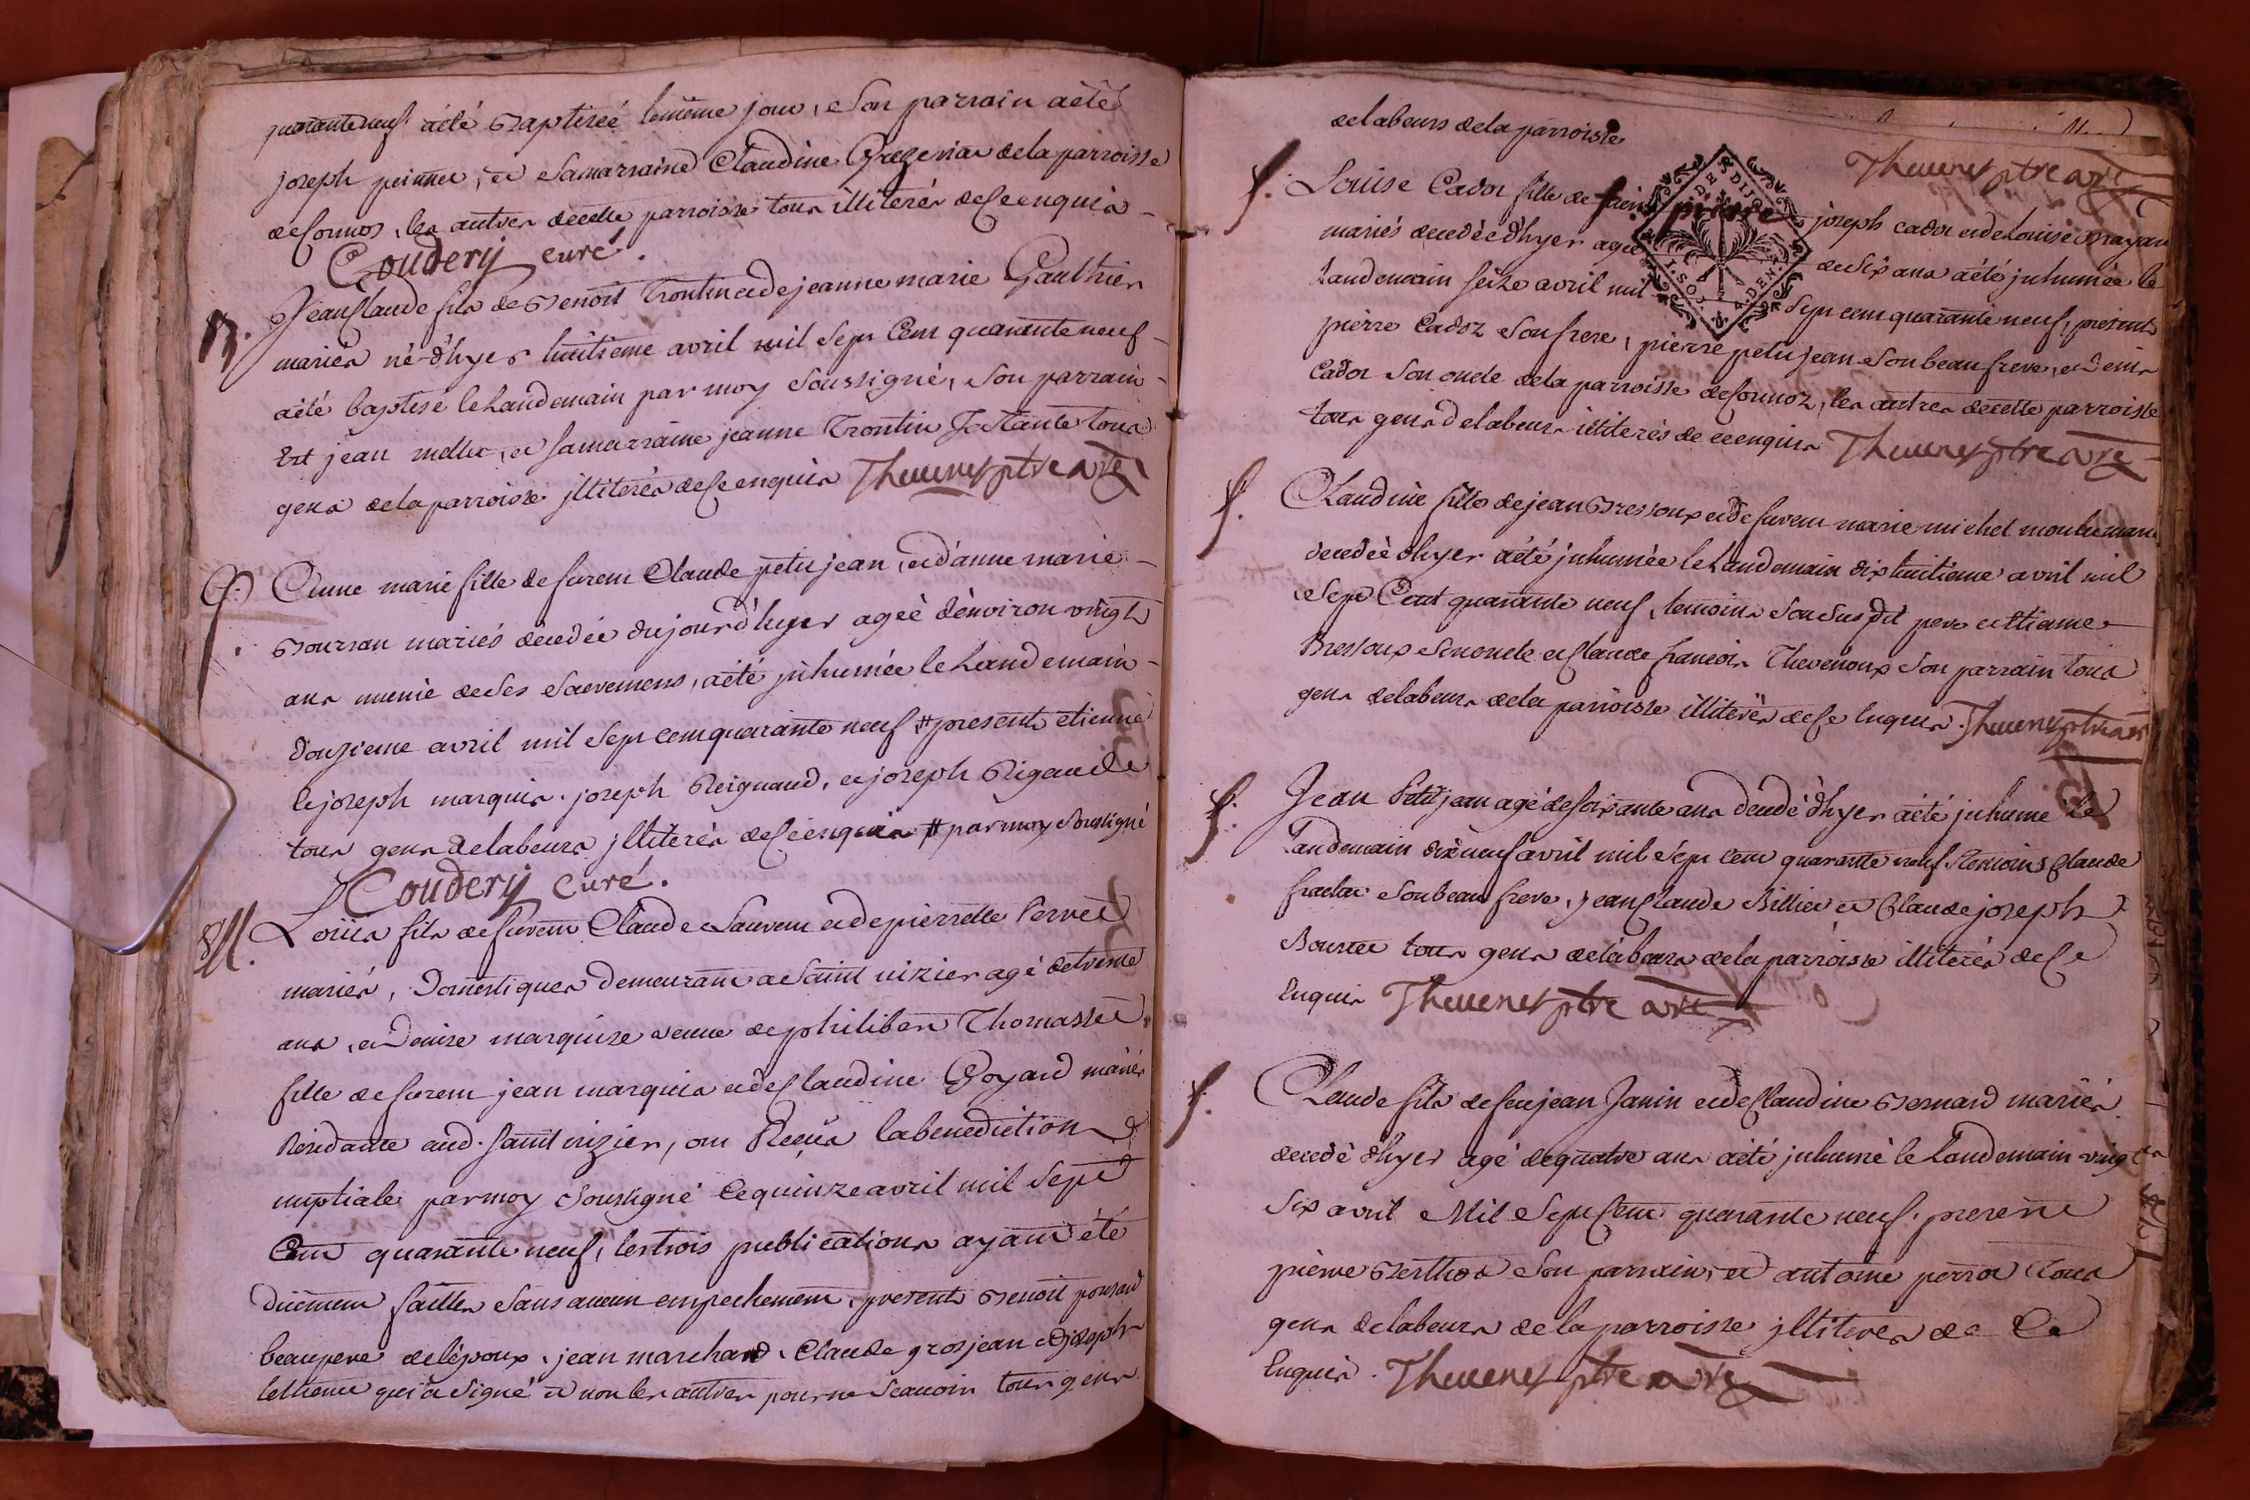 quaranteneuf aété Baptizéé lemême jour, Son parrain aété
joseph peinnet, et Samarraine Claudine delaparroisse
decormoz, les autres decette parroisse tous illiterés deceenquis
Coudery curé.
B. JeanClaude fils de Benoit Trontin et de jeanne marie Gauthier
mariés né d'hyer huitieme avril mil Sept Cent quaranteneuf
aété baptese leLandemain par moy Soussigné, Son parrain
Est jean mellet, et samarraine jeanne Trontin Sa Tante tous
gens delaparroisse illiterés deceenquis Thevenet ptre avré
f. Anne marie fille de furent Claude petitjean, et d'anne marie
Boursan mariés décedée dujourd'huyer ageé d'environ vingt
ans munie deses Sacremens, aété inhumée leLandemain
douzieme avril mil Sept cent quarante neuf # present etienne
et joseph marquis, joseph Reignaud, et joseph Rigaud
tous gens delabeurs illiterés deceenquis # par moy Soussigné
Coudery curé.
M. Loüis fils defurent Claude Sauvent et de pierrette Pernet
mariés, Domestiques demeurant aSaint vizier agé detrente
ans, et Denise marquise veuve dephilibert Thomasset
fille defurent jean marquis et de Claudine Goyard mariés
Residante aud. Saint vizier, ont Reçus labenediction
nuptiale parmoy Soussigné Cequinze avril mil Sept
Cent quarante neuf, lestrois publications ayant été
duëment faittes Sans aucun empechement, present Benoit ponsard
beaupere del'epoux, jean marchand, Claude grosjean et joseph
qui a Signé et non les autres pour ne Scavoir tous gens
delabeurs delaparroisse
Thevenet ptre avré
f. Louise Cadot fille de pierre joseph cadot et de Louise
mariés decedée d'hyer agée de Six ans aété inhumée le
Landemain seize avril mil Sept cent quarante neuf, present
pierre Cadoz Son frere, pierre petitjean Son beaufrere, et Denis
Cadot Son oncle dela parroisse decormoz, les autres decette parroisse
tous gens delabeurs illiterés de ceenquis Thevenet ptre avré
f. Claudine fille dejean Bressoux et defurent marie michel mariés
decedeé d'hyer aété inhumée leLandemain dix huitieme avril mil
Sept Cent quarante neuf, temoins SonSusdit pere et
Bressoux Sononcle et Claude francois Thevenoux Son parrain tous
gens delabeurs dela parroisse illiterés dece Enquis. Thevenet ptre avré
f. Jean Petitjean agé desoixante ans decedé d'hyer aété inhumé le
Landemain dixneuf avril mil Sept cent quarante neuf Temoins Claude
Sonbeau frere, JeanClaude Billiet et Claude joseph
Bourcet tous gens delabeurs dela parroisse illiterés dece
Enquis Thevenet ptre avré
f. Claude fils defeu jean Janin et de Claudine Bernard mariés
decedé d'hyer agé dequatre ans aété inhumé leLandemain vingt
Six avril Mil Sept Cent quarante neuf, present
pierre Berthod Son parrain, et antoine perrot tous
gens delabeurs dela parroisse illiterés de Ce
Enquis. Thevenet ptre avré